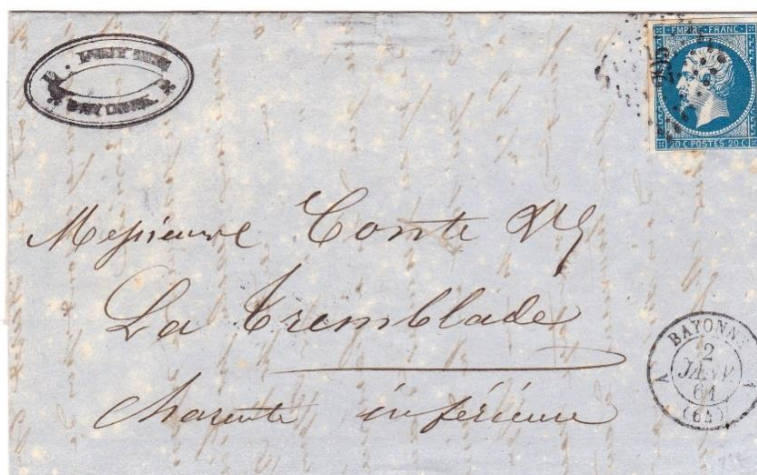 BAYONNE
EMPIRE FRANC
20 C POSTES 20 C
Messieurs Conte
La Tremblade
Charente inférieure
BAYONNE
2
JANV
61
(64)